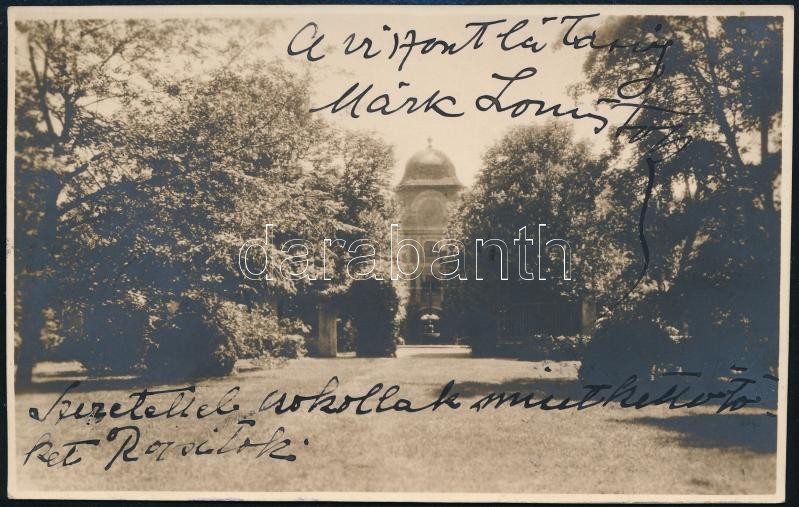 A viszontlátásig
Márk Lonis
darabanth
Szeretettel csokollak mindkettőtö-
ket Rozsitok.